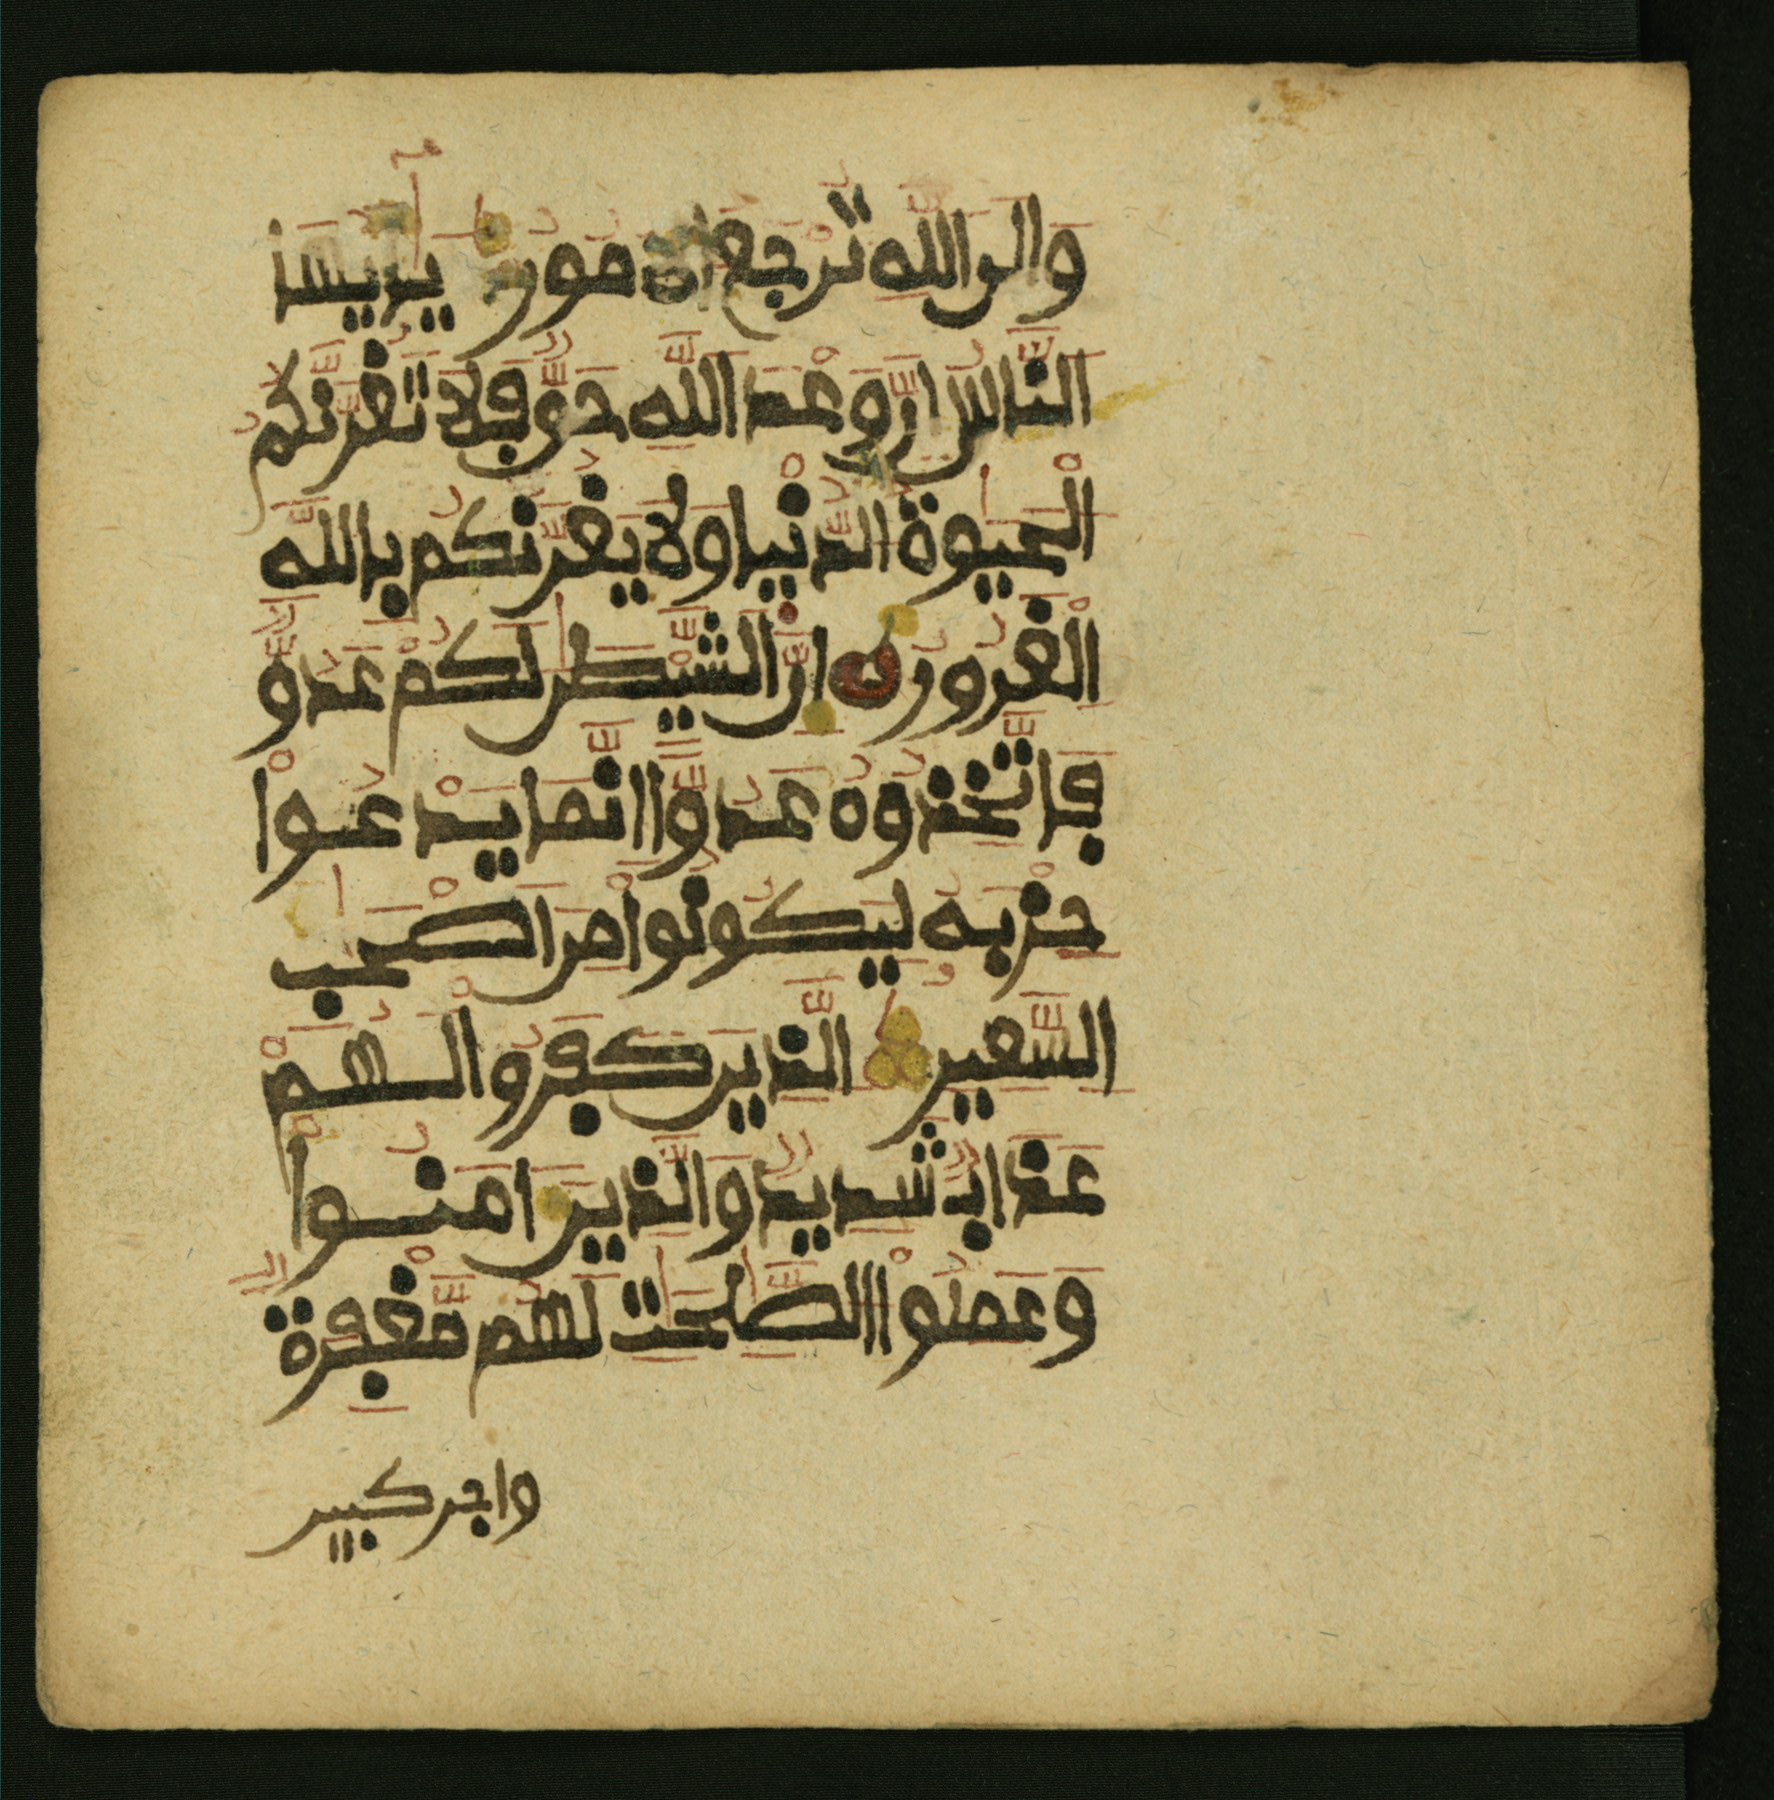 وَإِلَى اَللَّهِ تُرْجَعُ اُلُامُورُ يَٰٓأَيُّهَا
اَلنَّاسُ إِنَّ وَعْدَ اَللَّهِ حَقٌّ فَلَا تَغُرَّنَّكُمُ
اُلْحَيَوٰةُ اُلدُّنْيَا وَلَا يَغُرَّنَّكُم بِاللَّهِ
اِلْغَرُورُ إِنَّ اَلشَّيْطَٰنَ لَكُمْ عَدُوٌّ
فَاتَّخِذُوهُ عَدُوّاً اِنَّمَا يَدْعُواْ
حِزْبَهُ لِيَكُونُواْ مِنَ اَصْحَٰبِ
اِلسَّعِيرِ اِلَّذِينَ كَفَرُواْ لَهُمْ
عَذَابٌ شَدِيدٌ وَالَّذِينَ ءَامَنُواْ
وَعَمِلُواْ اُلصَّٰلِحَٰتِ لَهُم مَّغْفِرَةٌ
واجر كبير